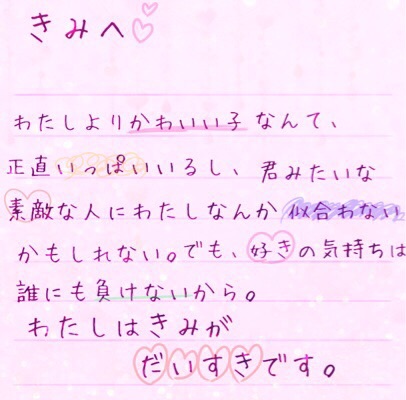 きみへ
わたしよりかわいい子なんて、
正直いっぱいいるし、君みたいな
素敵な人にわたしなんか似合わない
かもしれない。でも、好きの気持ちは
誰にも負けないから。
わたしはきみが
だいすきです。